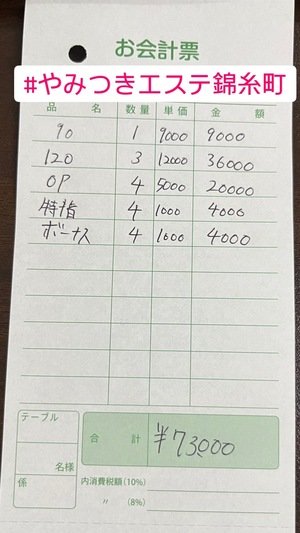 お会計票
#やみつきエステ錦糸町
品 名 数量 単価 金 額
90 1 9000 9000
120 3 12000 36000
OP 4 5000 20000
特指 4 1000 4000
ボーナス 4 1000 4000
テーブル
名様
係
合 計 ¥73000
内消費税額(10%)
〃 (8%)